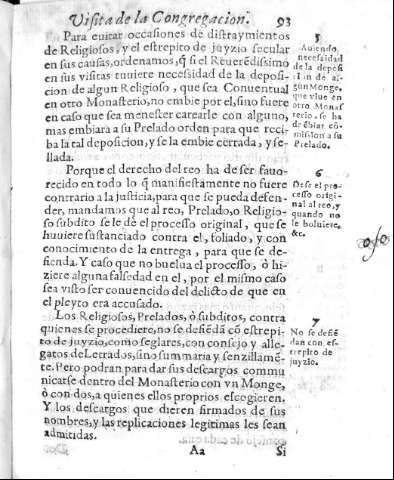 Visita de la Congregacion. 93
Para euitar occasiones de distraymientos
de Religiosos, y el estrepito de juyzio secular
en sus causas, ordenamos, q̃ si el Reuerẽdissimo
en sus visitas tuuiere necessidad de la deposi-
cion de algun Religioso, que sea Conuentual
en otro Monasterio, no embie por el, sino fuere
en caso que sea menester carearle con alguno,
mas embiara a su Prelado orden para que reci-
ba la tal deposicion, y se la embie cerrada, y se-
llada.
5
Auiendo
necessidad
de la deposi
cion de al-
gun Monge,
que viue en
otro Monas
terio, se ha
de ẽbiar cõ-
mission a su
Prelado.
Porque el derecho del reo ha de ser fauo-
recido en todo lo q̃ manifiestamente no fuere
contrario a la justicia, para que se pueda defen-
der, mandamos que al reo, Prelado, o Religio-
so subdito se le dè el processo original, que se
huuiere sustanciado contra el, foliado, y con
conocimiento de la entrega, para que se de-
fienda. Y caso que no buelua el processo, ò hi-
ziere alguna falsedad en el, por el mismo caso
sea visto ser conuencido del delicto de que en
el pleyto era accusado.
6
Dese el pro-
cesso origi-
nal al reo, y
quando no
le boluiere,
&c.
Los Religiosos, Prelados, ò subditos, contra
quienes se procediere, no se defiẽdã cõ estrepi-
to de juyzio, como seglares, con consejo y alle-
gatos de Letrados, sino summaria y senzillamẽ-
te. Pero podran para dar sus descargos commu
nicarse dentro del Monasterio con vn Monge,
ò con dos, a quienes ellos proprios escogieren.
Y los descargos que dieren firmados de sus
nombres, y las replicaciones legitimas les sean
admitidas.
7
No se defiẽ
dan con es-
trepito de
juyzio.
Aa Si